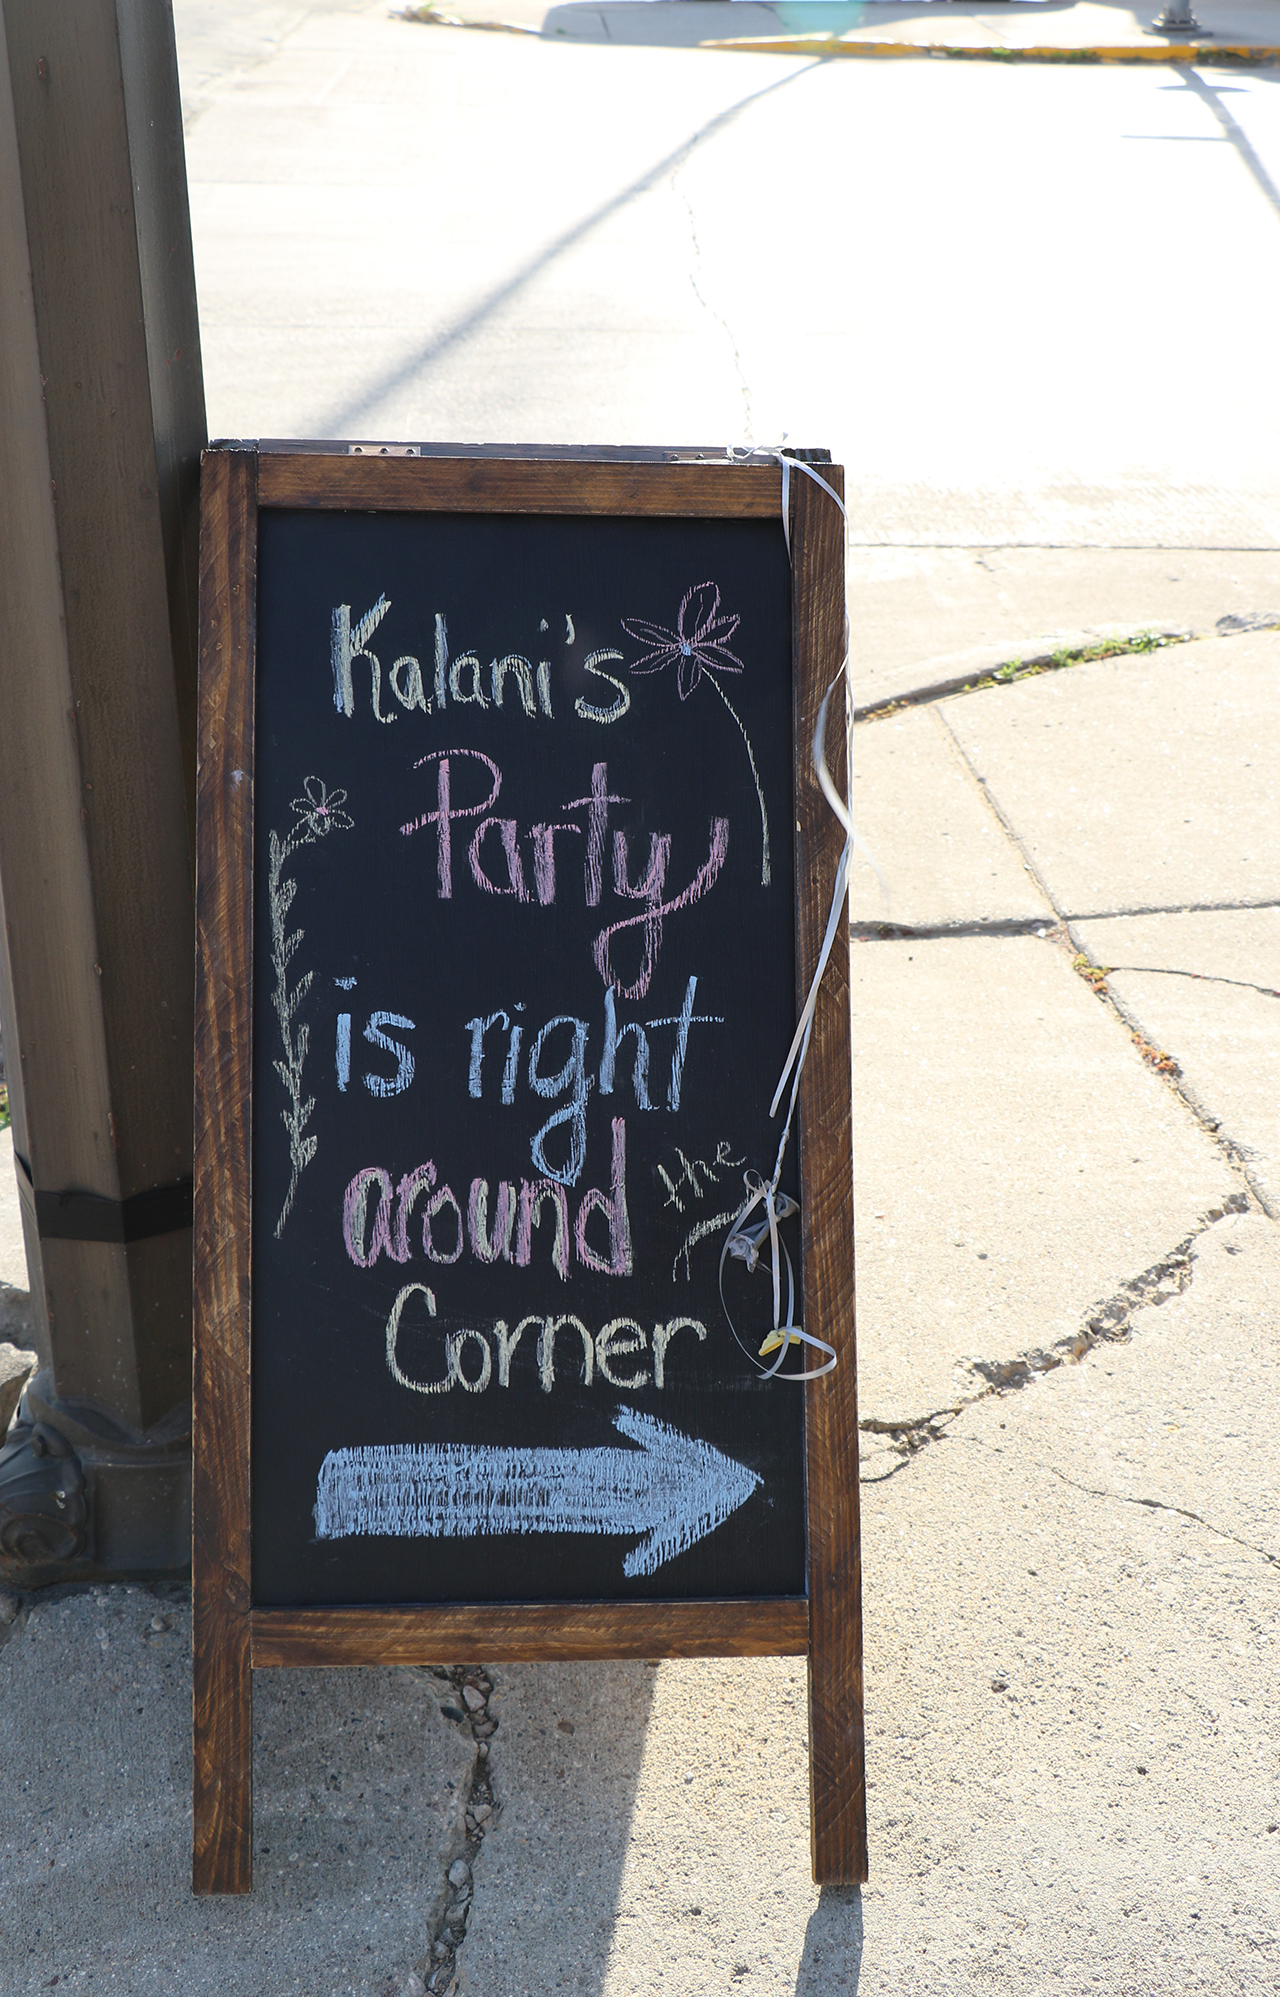 Kalani's
Party
is right
around the
Corner